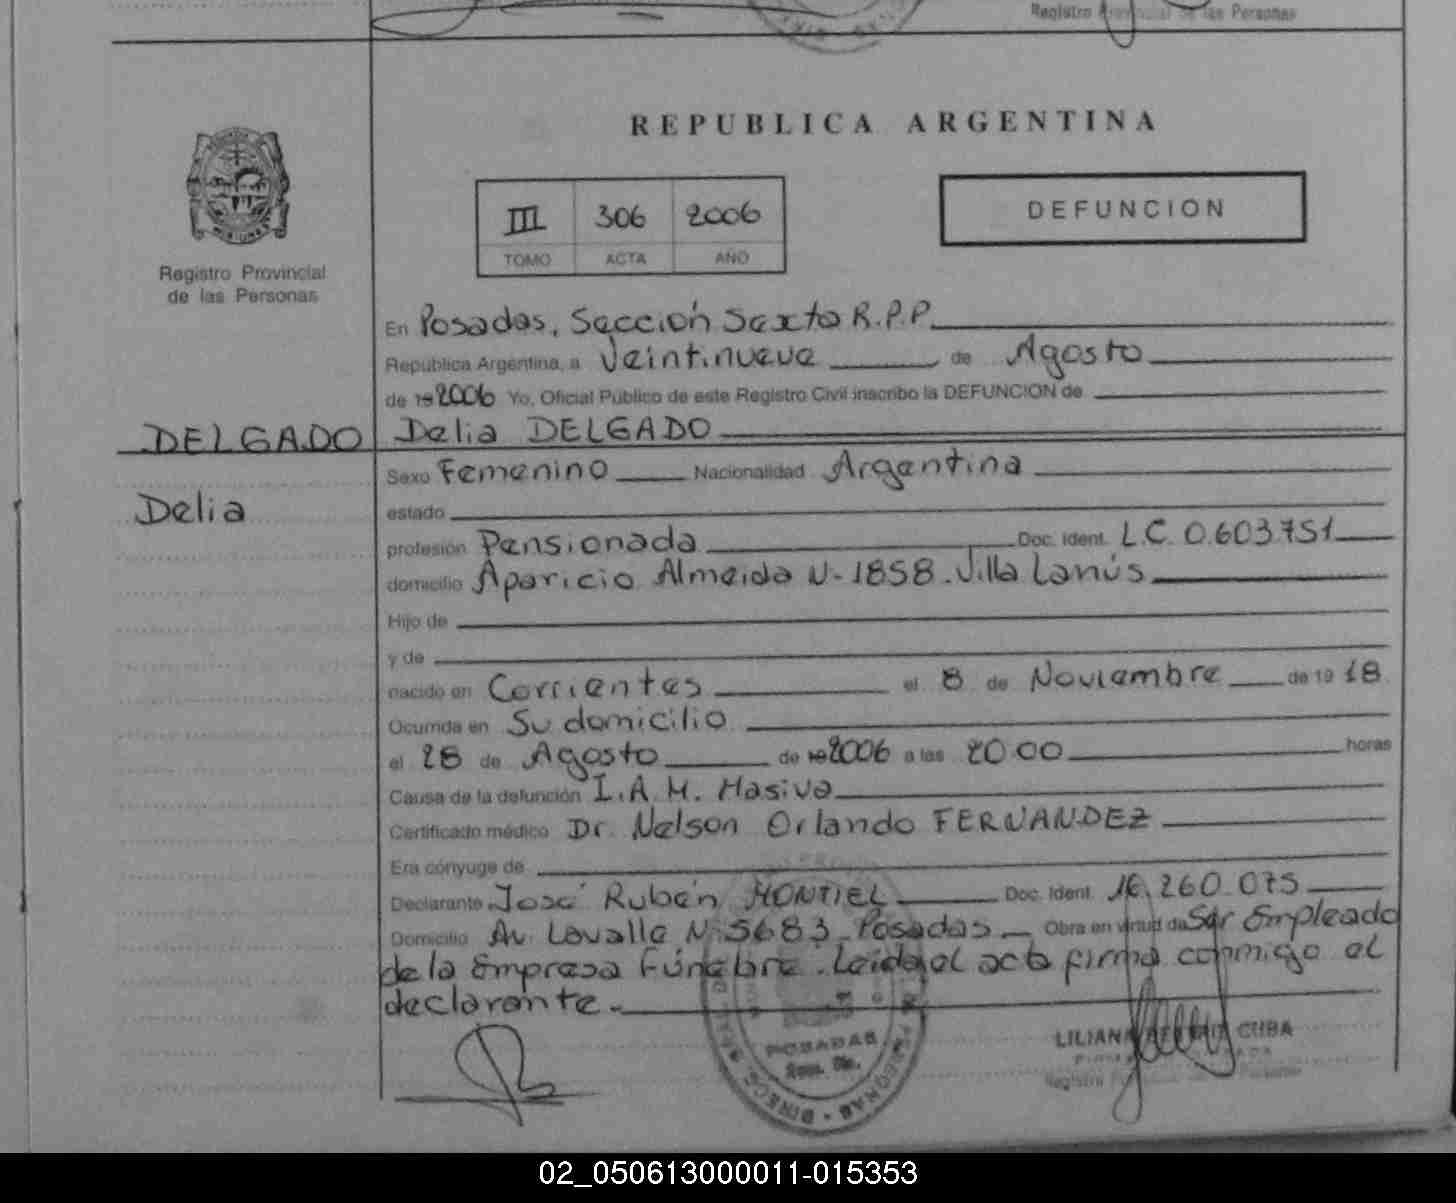 Registro Provincial de las Personas
REPUBLICA ARGENTINA
III 306 2006
TOMO ACTA AÑO
DEFUNCION
Registro Provincial
de las Personas
En Posadas, Sección Sexta R.P.P.
República Argentina, a Veintinueve de Agosto
de 19 2006 Yo, Oficial Público de este Registro Civil inscribo la DEFUNCION de
DELGADO Delia DELGADO
Delia
Sexo Femenino Nacionalidad Argentina
estado
profesión Pensionada Doc. Ident. L.C. 0.603.751
domicilio Aparicio Almeida N- 1858. Villa Lanús
Hijo de
y de
nacido en Corrientes el 8 de Noviembre de 19 18
Ocurrida en Su domicilio
el 28 de Agosto de 19 2006 a las 20 00 horas
Causa de la defunción I.A.M. Masivo
Certificado médico Dr. Nelson Orlando FERNANDEZ
Era cónyuge de
Declarante José Rubén MONTIEL Doc. Ident. 16.260.075
Domicilio Av. Lavalle N- 5683 - Posadas Obra en virtud de Ser Empleado
de la Empresa Fúnebre. Leida el acta firma conmigo el
declarante.
POSADAS
LILIANA CUBA
Registro Personas
02_050613000011-015353